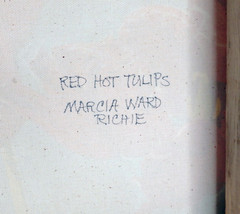 RED HOT TULIPS
MARCIA WARD
RICHIE